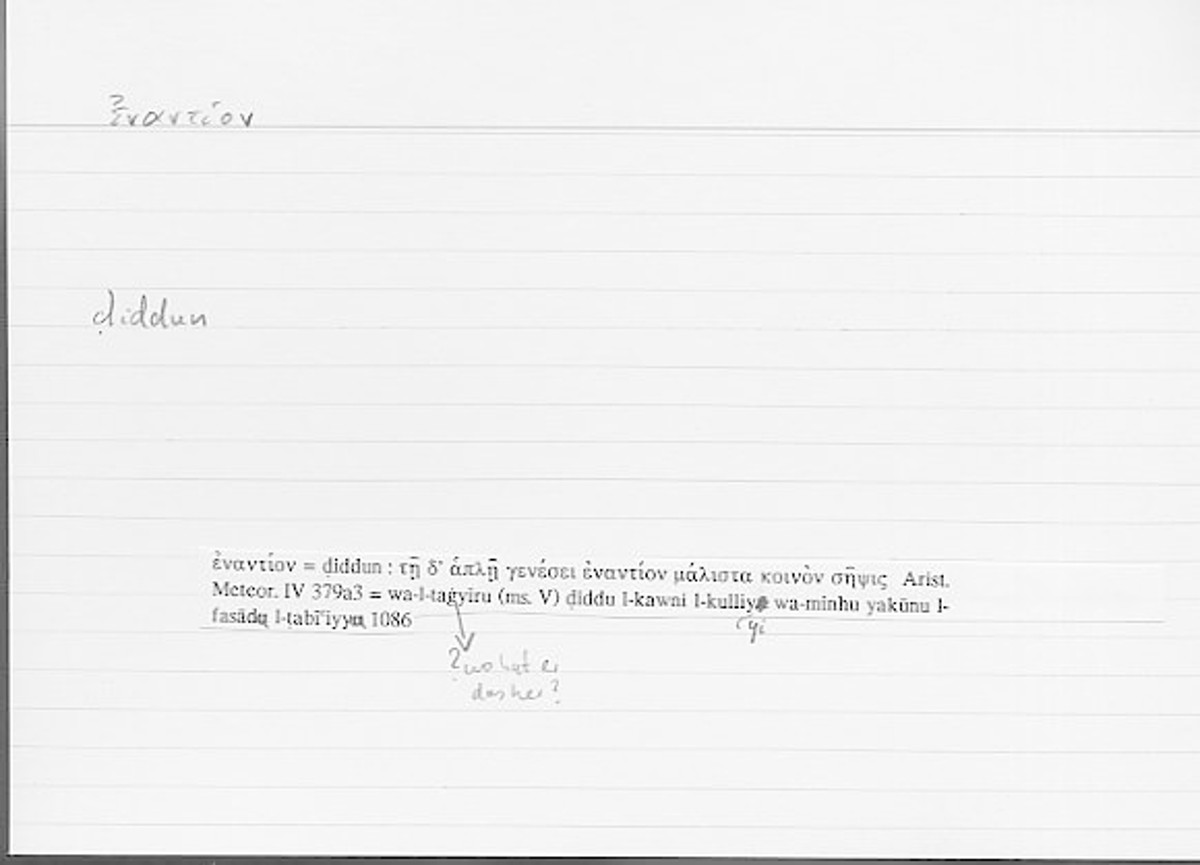 ἐναντίον
ḍiddun
ἐναντίον = ḍiddun : τῇ δ' ἁπλῇ γενέσει ἐναντίον μάλιστα κοινὸν σῆψις Arist.
Meteor. IV 379a3 = wa-l-taġyiru (ms. V) ḍiddu l-kawni l-kulliy wa-minhu yakūnu l-
yi
fasādu l-ṭabīʿiyyu 1086
? wo hat er
das her?